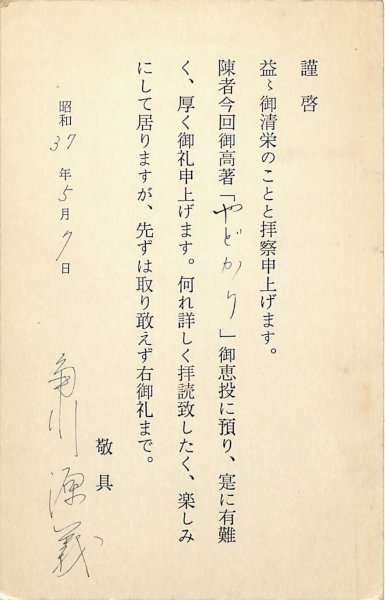 謹啓
益〻御清栄のことと拝察申上げます。
陳者今回御高著「やどかり」御恵投に預り、寔に有難
く、厚く御礼申上げます。何れ詳しく拝読致したく、楽しみ
にして居りますが、先ずは取り敢えず右御礼まで。
敬具
昭和37年5月7日
角川源義